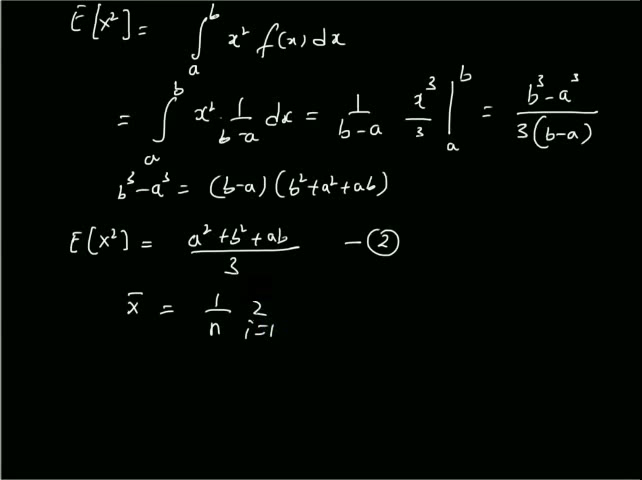 E[x²] = ∫ₐᵇ x² f(x) dx
= ∫ₐᵇ x² · 1/(b-a) dx = 1/(b-a) x³/3 |ₐᵇ = (b³-a³)/(3(b-a))
b³-a³ = (b-a)(b²+a²+ab)
E[x²] = (a²+b²+ab)/3 - ②
x̄ = 1/n Σ i=1